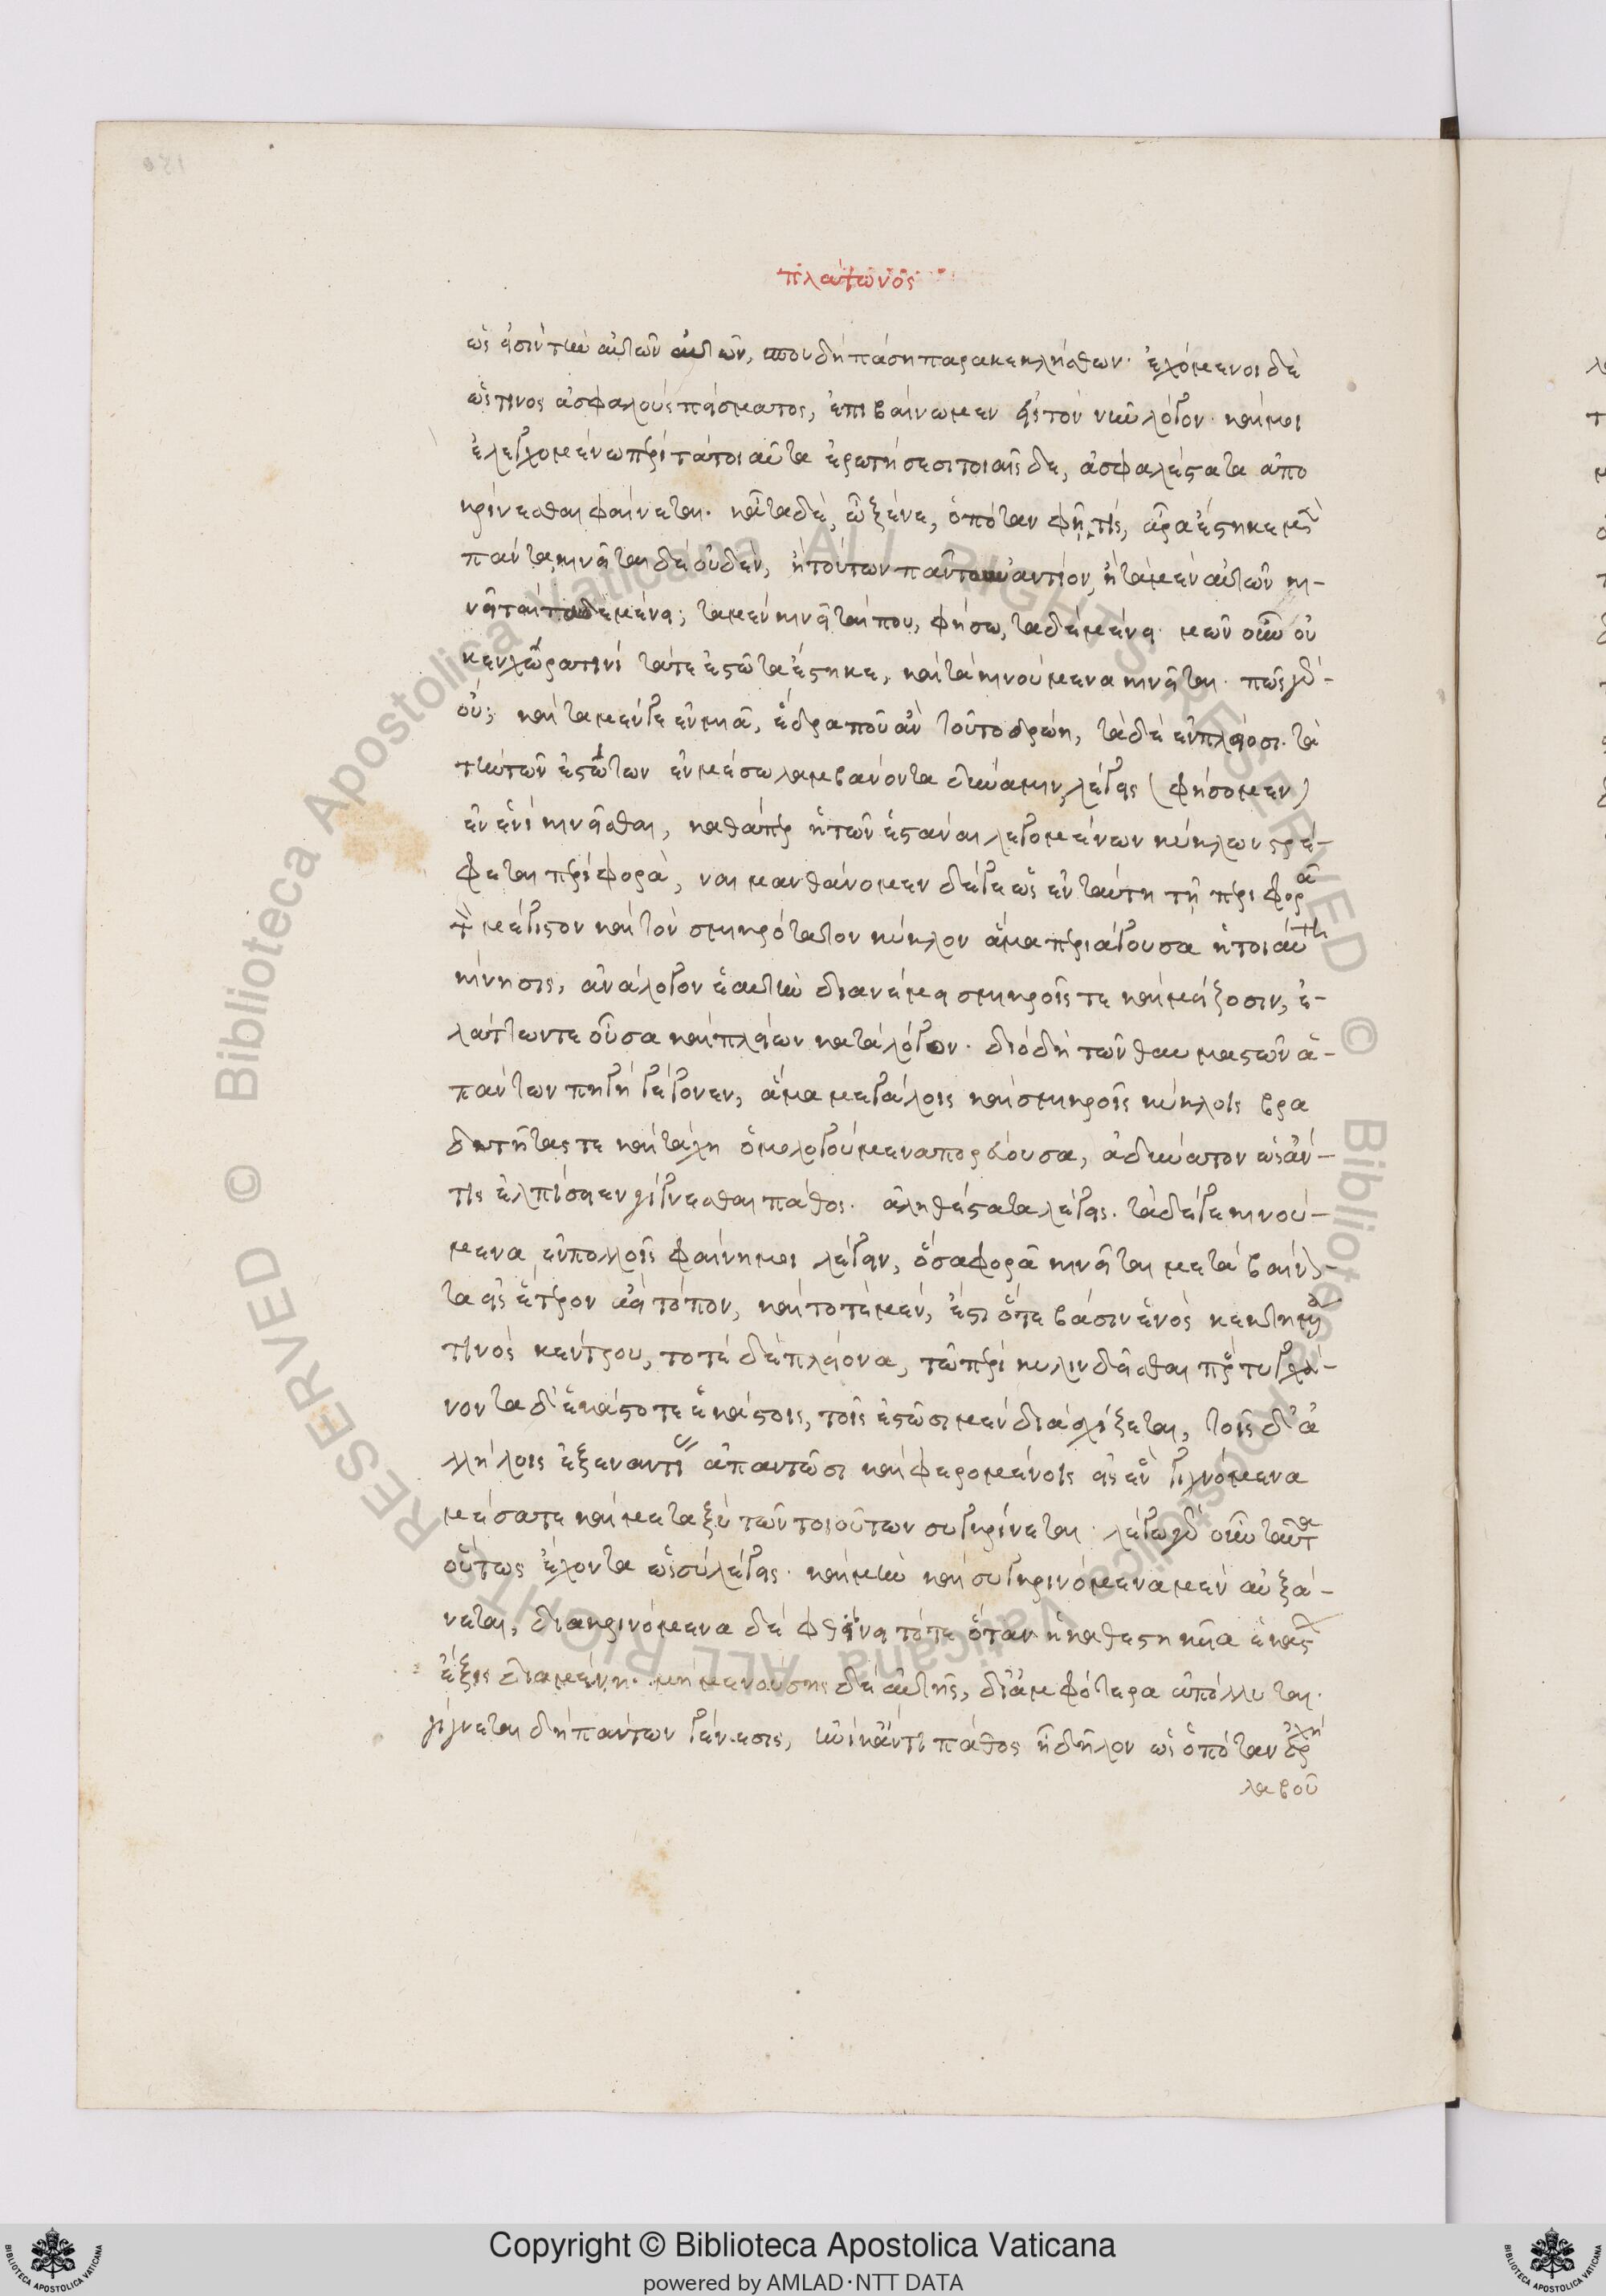 πλάτωνος
ὡς εἰσὶν τὴν αὐτῶν αὐτῶν, σπουδῇ πάσῃ παρακεκλήσθων· ἐχόμενοι δὲ
ὥς τινος ἀσφαλοῦς πείσματος, ἐπιβαίνωμεν εἰς τὸν νῦν λόγον· καί μοι
ἐλεγχομένῳ περὶ τὰ τοιαῦτα ἐρωτήσεσι τοιαῖσδε, ἀσφαλέστατα ἀπο
κρίνεσθαι φαίνεται· κᾆτα δὲ, ὦ ξένε, ὁπόταν φῇ τις, ἆρα ἕστηκε μὲν
πάντα, κινεῖται δὲ οὐδὲν, ἢ τούτων πᾶν τοὐναντίον, ἢ τὰ μὲν αὐτῶν κι-
νεῖται τὰ δὲ μένει; τὰ μὲν κινεῖταί που, φήσω, τὰ δὲ μένει· μῶν οὖν οὐ
κ ἐν χώρᾳ τινὶ τά τε ἑστῶτα ἕστηκε, καὶ τὰ κινούμενα κινεῖται· πῶς γὰρ
οὔ; καὶ τὰ μέν γε ἐν μιᾷ, ἕδρᾳ που ἂν τοῦτο δρῴη, τὰ δὲ ἐν πλείοσι· τὰ
τὴν τῶν ἑστώτων ἐν μέσῳ λαμβάνοντα δύναμιν, λέγεις (φήσομεν)
ἐν ἑνὶ κινεῖσθαι, καθάπερ ἡ τῶν ἑστάναι λεγομένων κύκλων στρέ-
φεται περιφορὰ, ναι μανθάνομεν δέ γε ὡς ἐν ταύτῃ τῇ περιφορᾷ
τὸν μέγιστον καὶ τὸν σμικρότατον κύκλον ἅμα περιάγουσα ἡ τοιαύτη
κίνησις, ἀνάλογον ἑαυτὴν διανέμει σμικροῖς τε καὶ μείζοσιν, ἐ-
λάττων τε οὖσα καὶ πλείων κατὰ λόγον· διὸ δὴ τῶν θαυμαστῶν ἁ-
πάντων πηγὴ γέγονεν, ἅμα μεγάλοις καὶ σμικροῖς κύκλοις βρα
δυτῆτάς τε καὶ τάχη ὁμολογούμενα πορεύουσα, ἀδύνατον ὡς ἄν
τις ἐλπίσειεν γίγνεσθαι πάθος· ἀληθέστατα λέγεις· τὰ δέ γε κινού-
μενα ἐν πολλοῖς φαίνῃ μοι λέγειν, ὅσα φορᾷ κινεῖται μεταβαίνον-
τα εἰς ἕτερον ἀεὶ τόπον, καὶ τοτὲ μὲν, ἔστι ὅτε βάσιν ἑνὸς κεκτημένα
τινὸς κέντρου, τοτὲ δὲ πλείονα, τῷ περικυλινδεῖσθαι προστυγχά-
νοντα δ' ἑκάστοτε ἑκάστοις, τοῖς ἑστῶσι μὲν διασχίζεται, τοῖς δ' ἀ
λλήλοις ἐξ ἐναντίας ἀπαντῶσι καὶ φερομένοις εἰς ἓν γιγνόμενα
μέσα τε καὶ μεταξὺ τῶν τοιούτων συγκρίνεται· λέγω γὰρ οὖν ταῦτα
οὕτως ἔχοντα ὡς σὺ λέγεις· καὶ μὴν καὶ συγκρινόμενα μὲν αὐξά-
νεται, διακρινόμενα δὲ φθίνει τότε ὅταν ἡ καθεστηκυῖα ἑκάστων
ἕξις διαμένῃ· μὴ μενούσης δὲ αὐτῆς, δι' ἀμφότερα ἀπόλλυται·
γίγνεται δὴ πάντων γένεσις, ἡνίκ' ἄν τι πάθος ᾖ δῆλον ὡς ὁπόταν ἀρχὴ
λαβοῦ